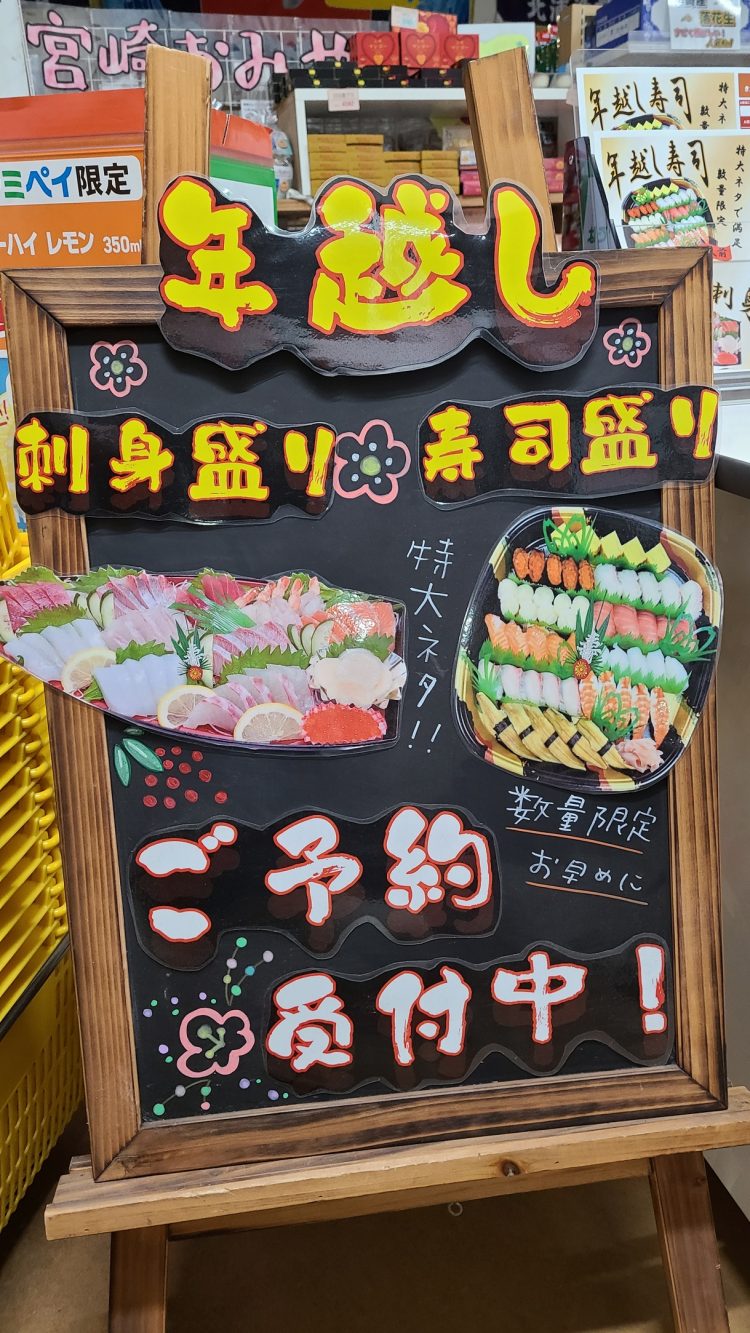 宮崎おみや
ミペイ限定
ーハイ レモン 350m
年越し寿司
特大ネ
数量
年越し寿司
特大ネタで満足
数量限定
年越し
刺身盛り
寿司盛り
特大ネタ!!
数量限定
お早めに
ご予約
受付中!